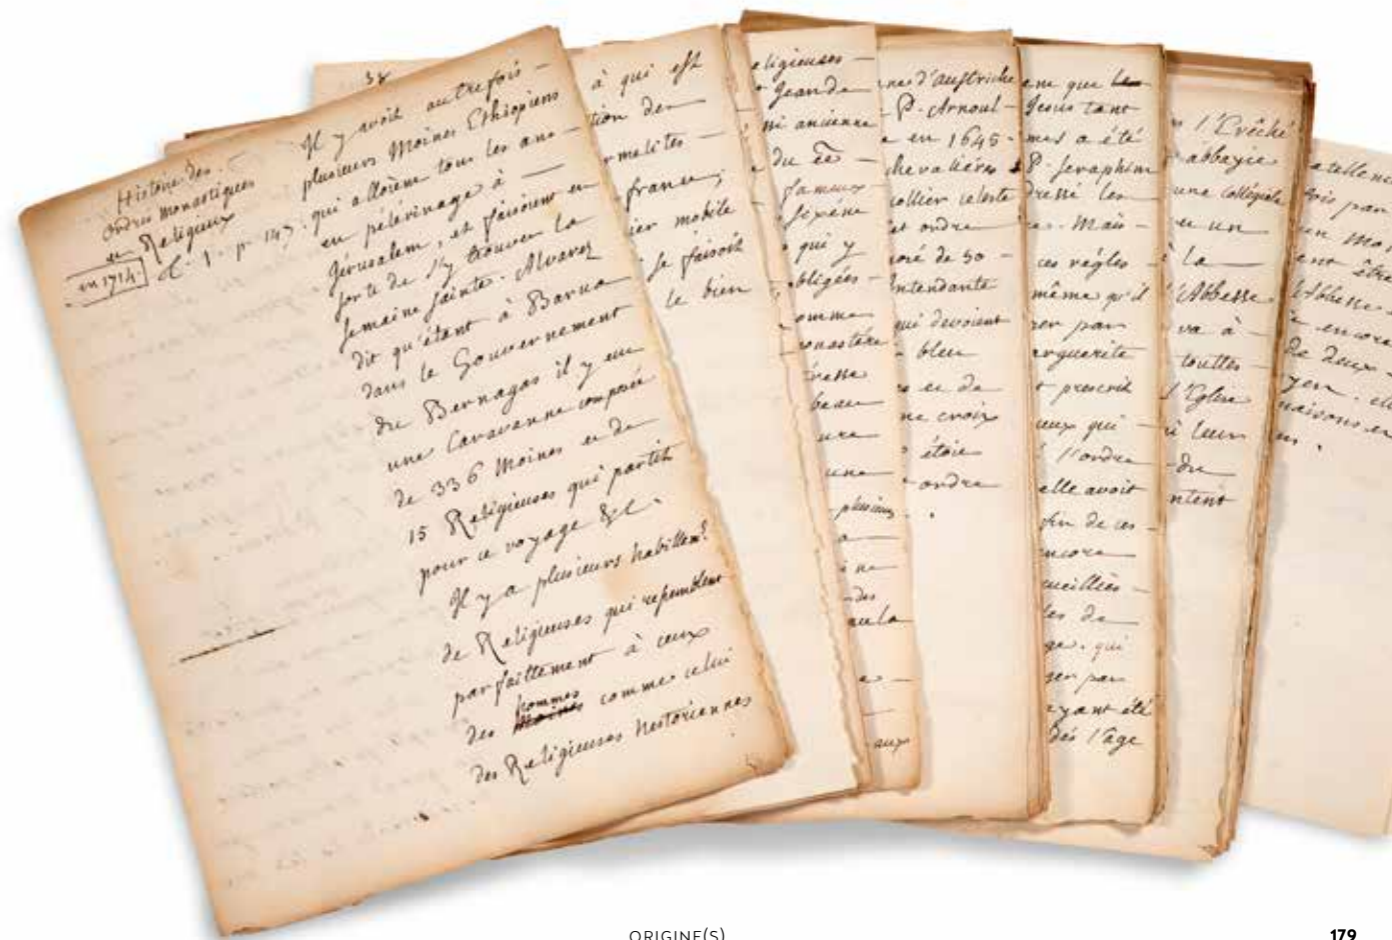 Histoire des
ordres monastiques
et Religieux
en 1714.
t. 1. p. 147.
Il y avoit autrefois —
plusieurs Moines Ethiopiens
qui alloient tous les ans —
en pélérinage à —
Jérusalem, et faisoient en
sorte de s'y trouver la
semaine sainte. Alvarez
dit qu'étant à Barua
dans le Gouvernement
du Bernagas il y eut
une Caravanne composée
de 336 Moines et de
15 Religieuses qui partit
pour ce voyage &c.
Il y a plusieurs habillem.ts
de Religieuses qui resemblent
parfaittement à ceux
des hommes comme celui
des Religieuses nestoriennes
38
à qui est
tion des
rmelites —
france,
ier mobile
se faisoit
le bien
eligieuses —
Jean de
ni ancienne
du
fameux
sixéne
qui y
obligées —
omme
onastére
tresse
beau
ure
une
plusieurs
a
ne
des
au la
e —
aux
nne d'austriche
P. Arnoul —
e en 1645.
chevalières
collier celeste
et ordre
oré de 50 —
Intendante
qui devoient
bleu
es et de
ne croix
étoie
ordre
em que
Jesus tant
mes a été
P. Seraphim
dressé les
Mais —
ces régles
même qu'il
rer par
arguerite
prescrit
eux qui —
l'ordre
elle avoit
fin de ces —
encore
cueillies —
les de
ge. qui
ger par
ayant été
dés l'âge
l'Evêché
abbayie
une Collégiale
en un
à la
l'Abbesse
va à —
touttes —
l'Eglise
à leur
du
ntent
atellenie
ois par
un Mo
ent être
l'Abbesse
encore
de deux —
yen. el
naisons en
ORIGINE(S)
179